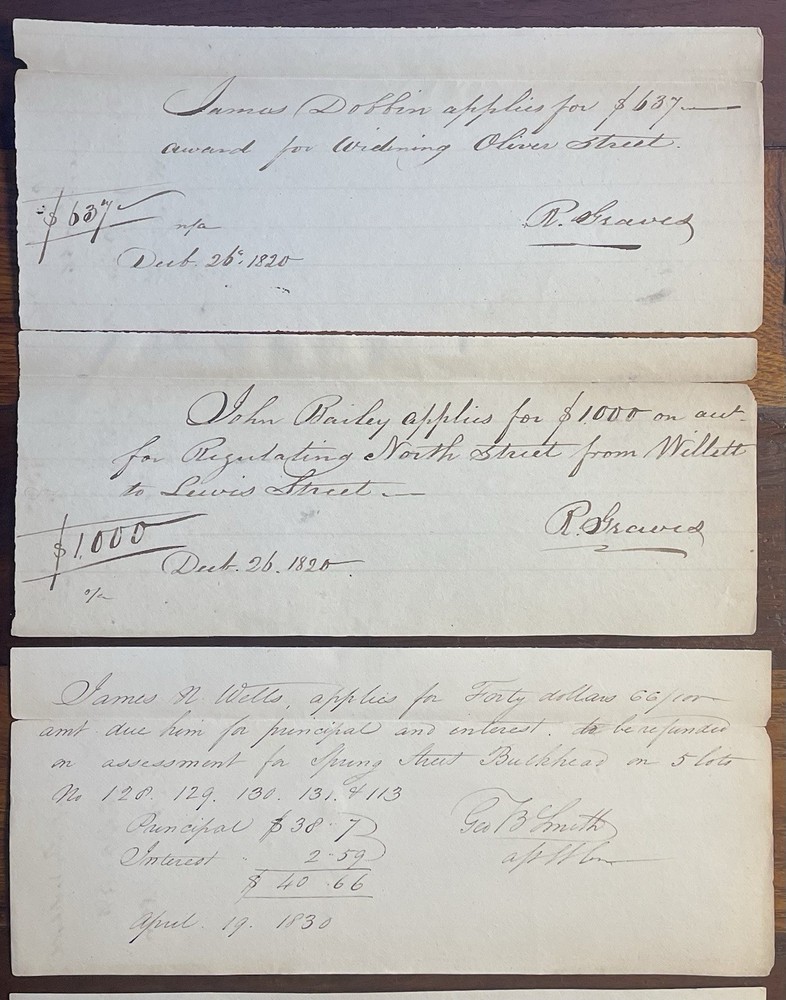 James Dobbin applies for $637—
award for Widening Oliver Street.
$637
R. Graves
Decb. 26. 1820
John Bailey applies for $1.000 on acct.
for Regulating North Street from Willett
to Lewis Street.—
$1.000
R. Graves
Decb. 26. 1820.
James N. Wells, applies for Forty dollars 66/100
amt due him for principal and interest. to be refunded
on assessment for Spring Street Bulkhead on 5 lots
No 128. 129. 130. 131. & 113
Principal $38.7
Geo B Smith
Interest 2.59
$40.66
April. 19. 1830